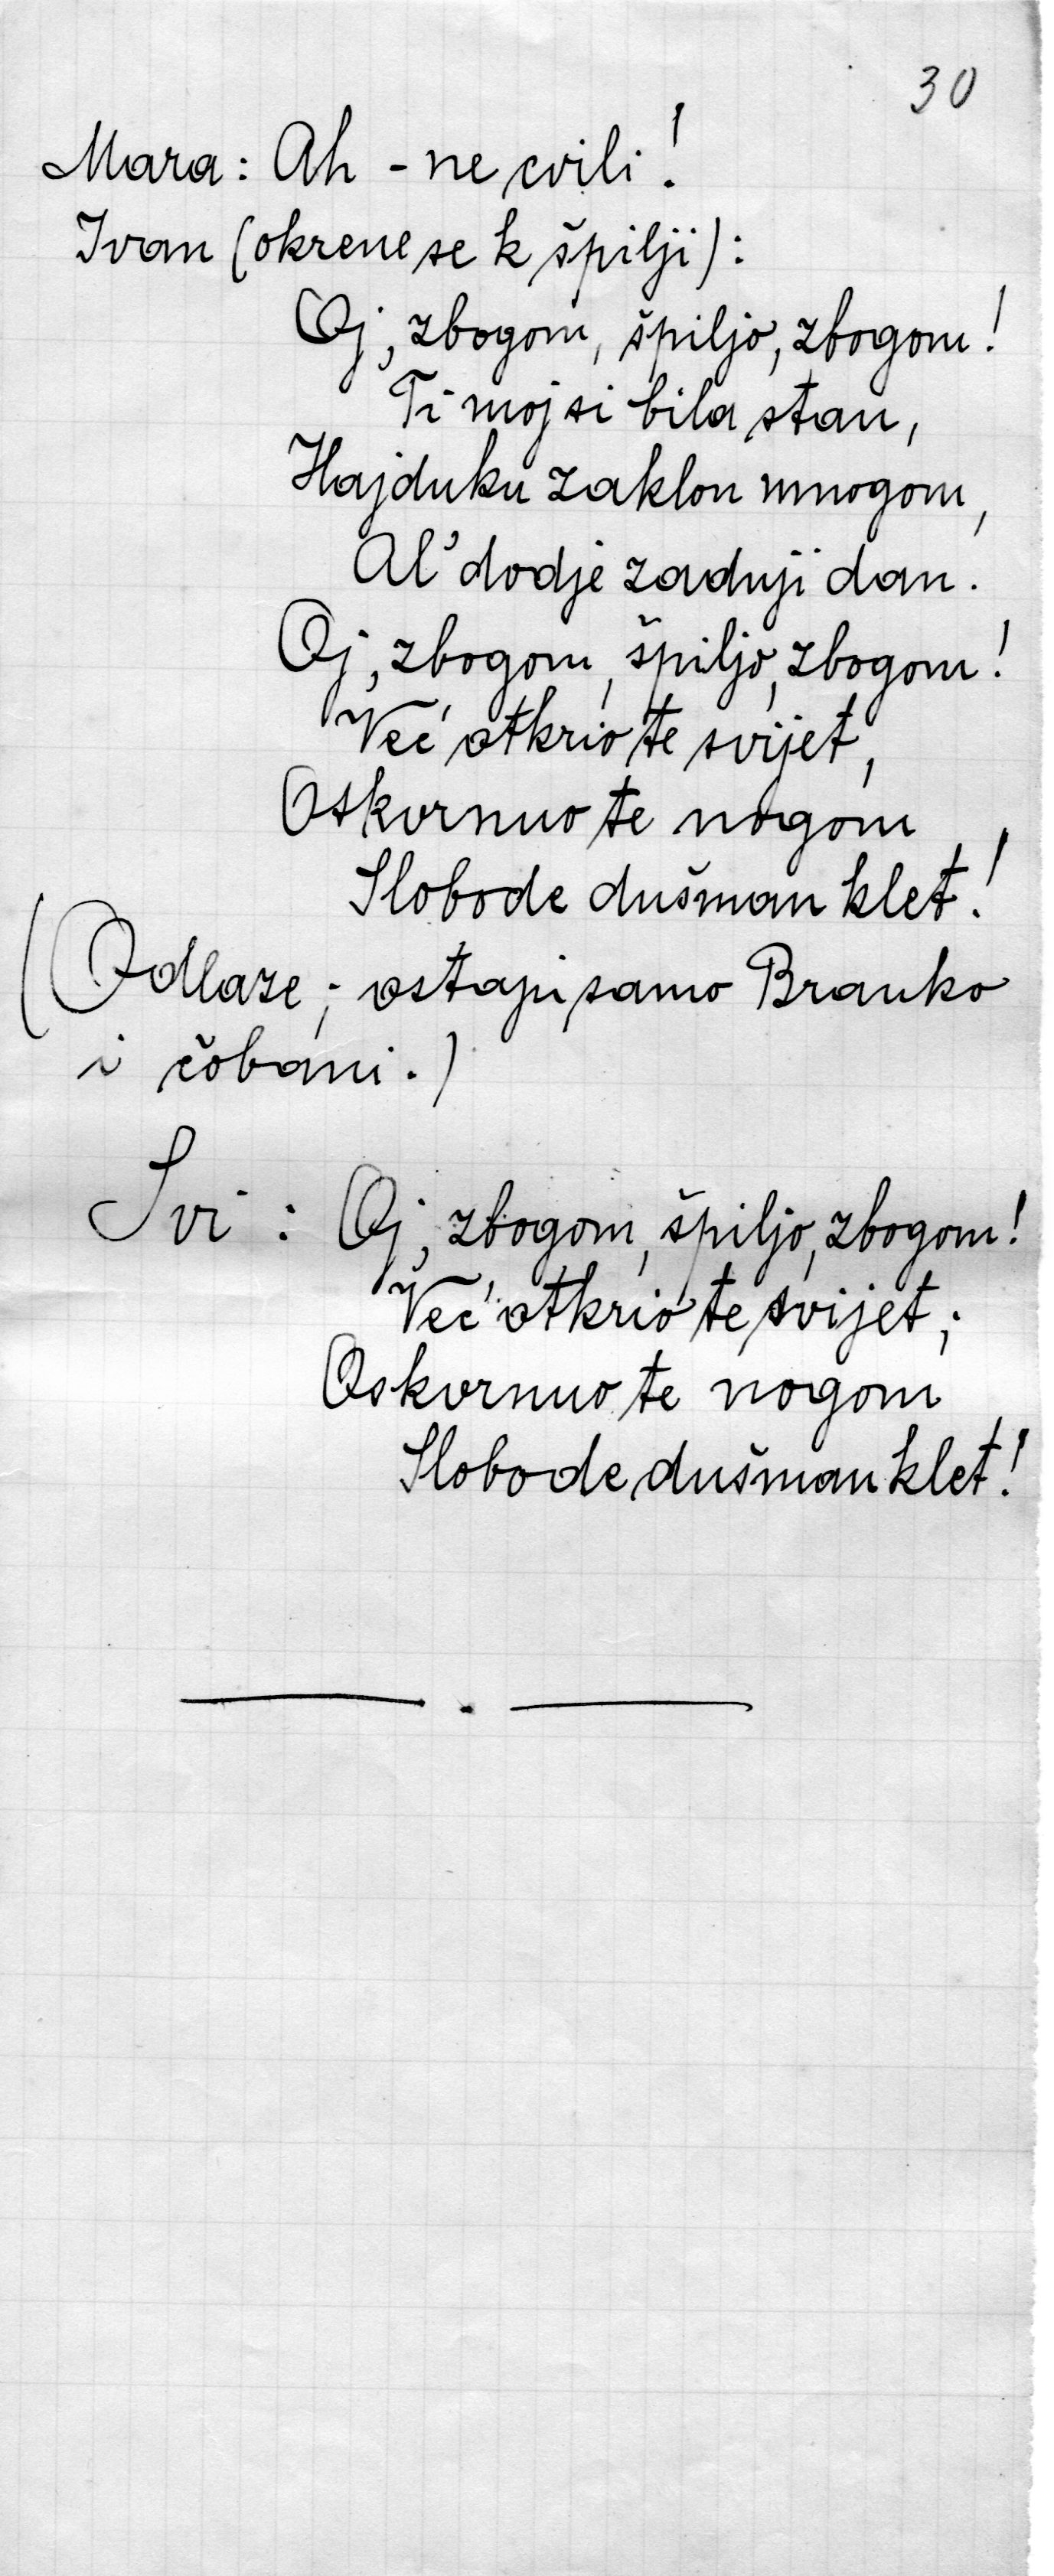 30
Mara: Ah - ne cvili!
Ivan (okrene se k špilji):
Oj, zbogom, špiljo, zbogom!
Ti moj si bila stan,
Hajduku zaklon mnogom,
Al' dodje zadnji dan.
Oj, zbogom, špiljo, zbogom!
Već otkrio te svijet,
Oskvrnuo te nogom
Slobode dušman klet!
(Odlaze; ostaju samo Branko
i čobani.)
Svi: Oj, zbogom, špiljo, zbogom!
Već otkrio te svijet;
Oskvrnuo te nogom
Slobode dušman klet!